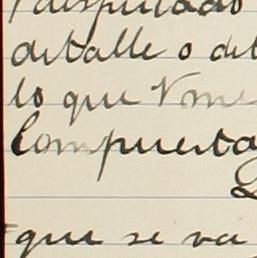 detalle o det
lo que Vme
Compuerta
que se va